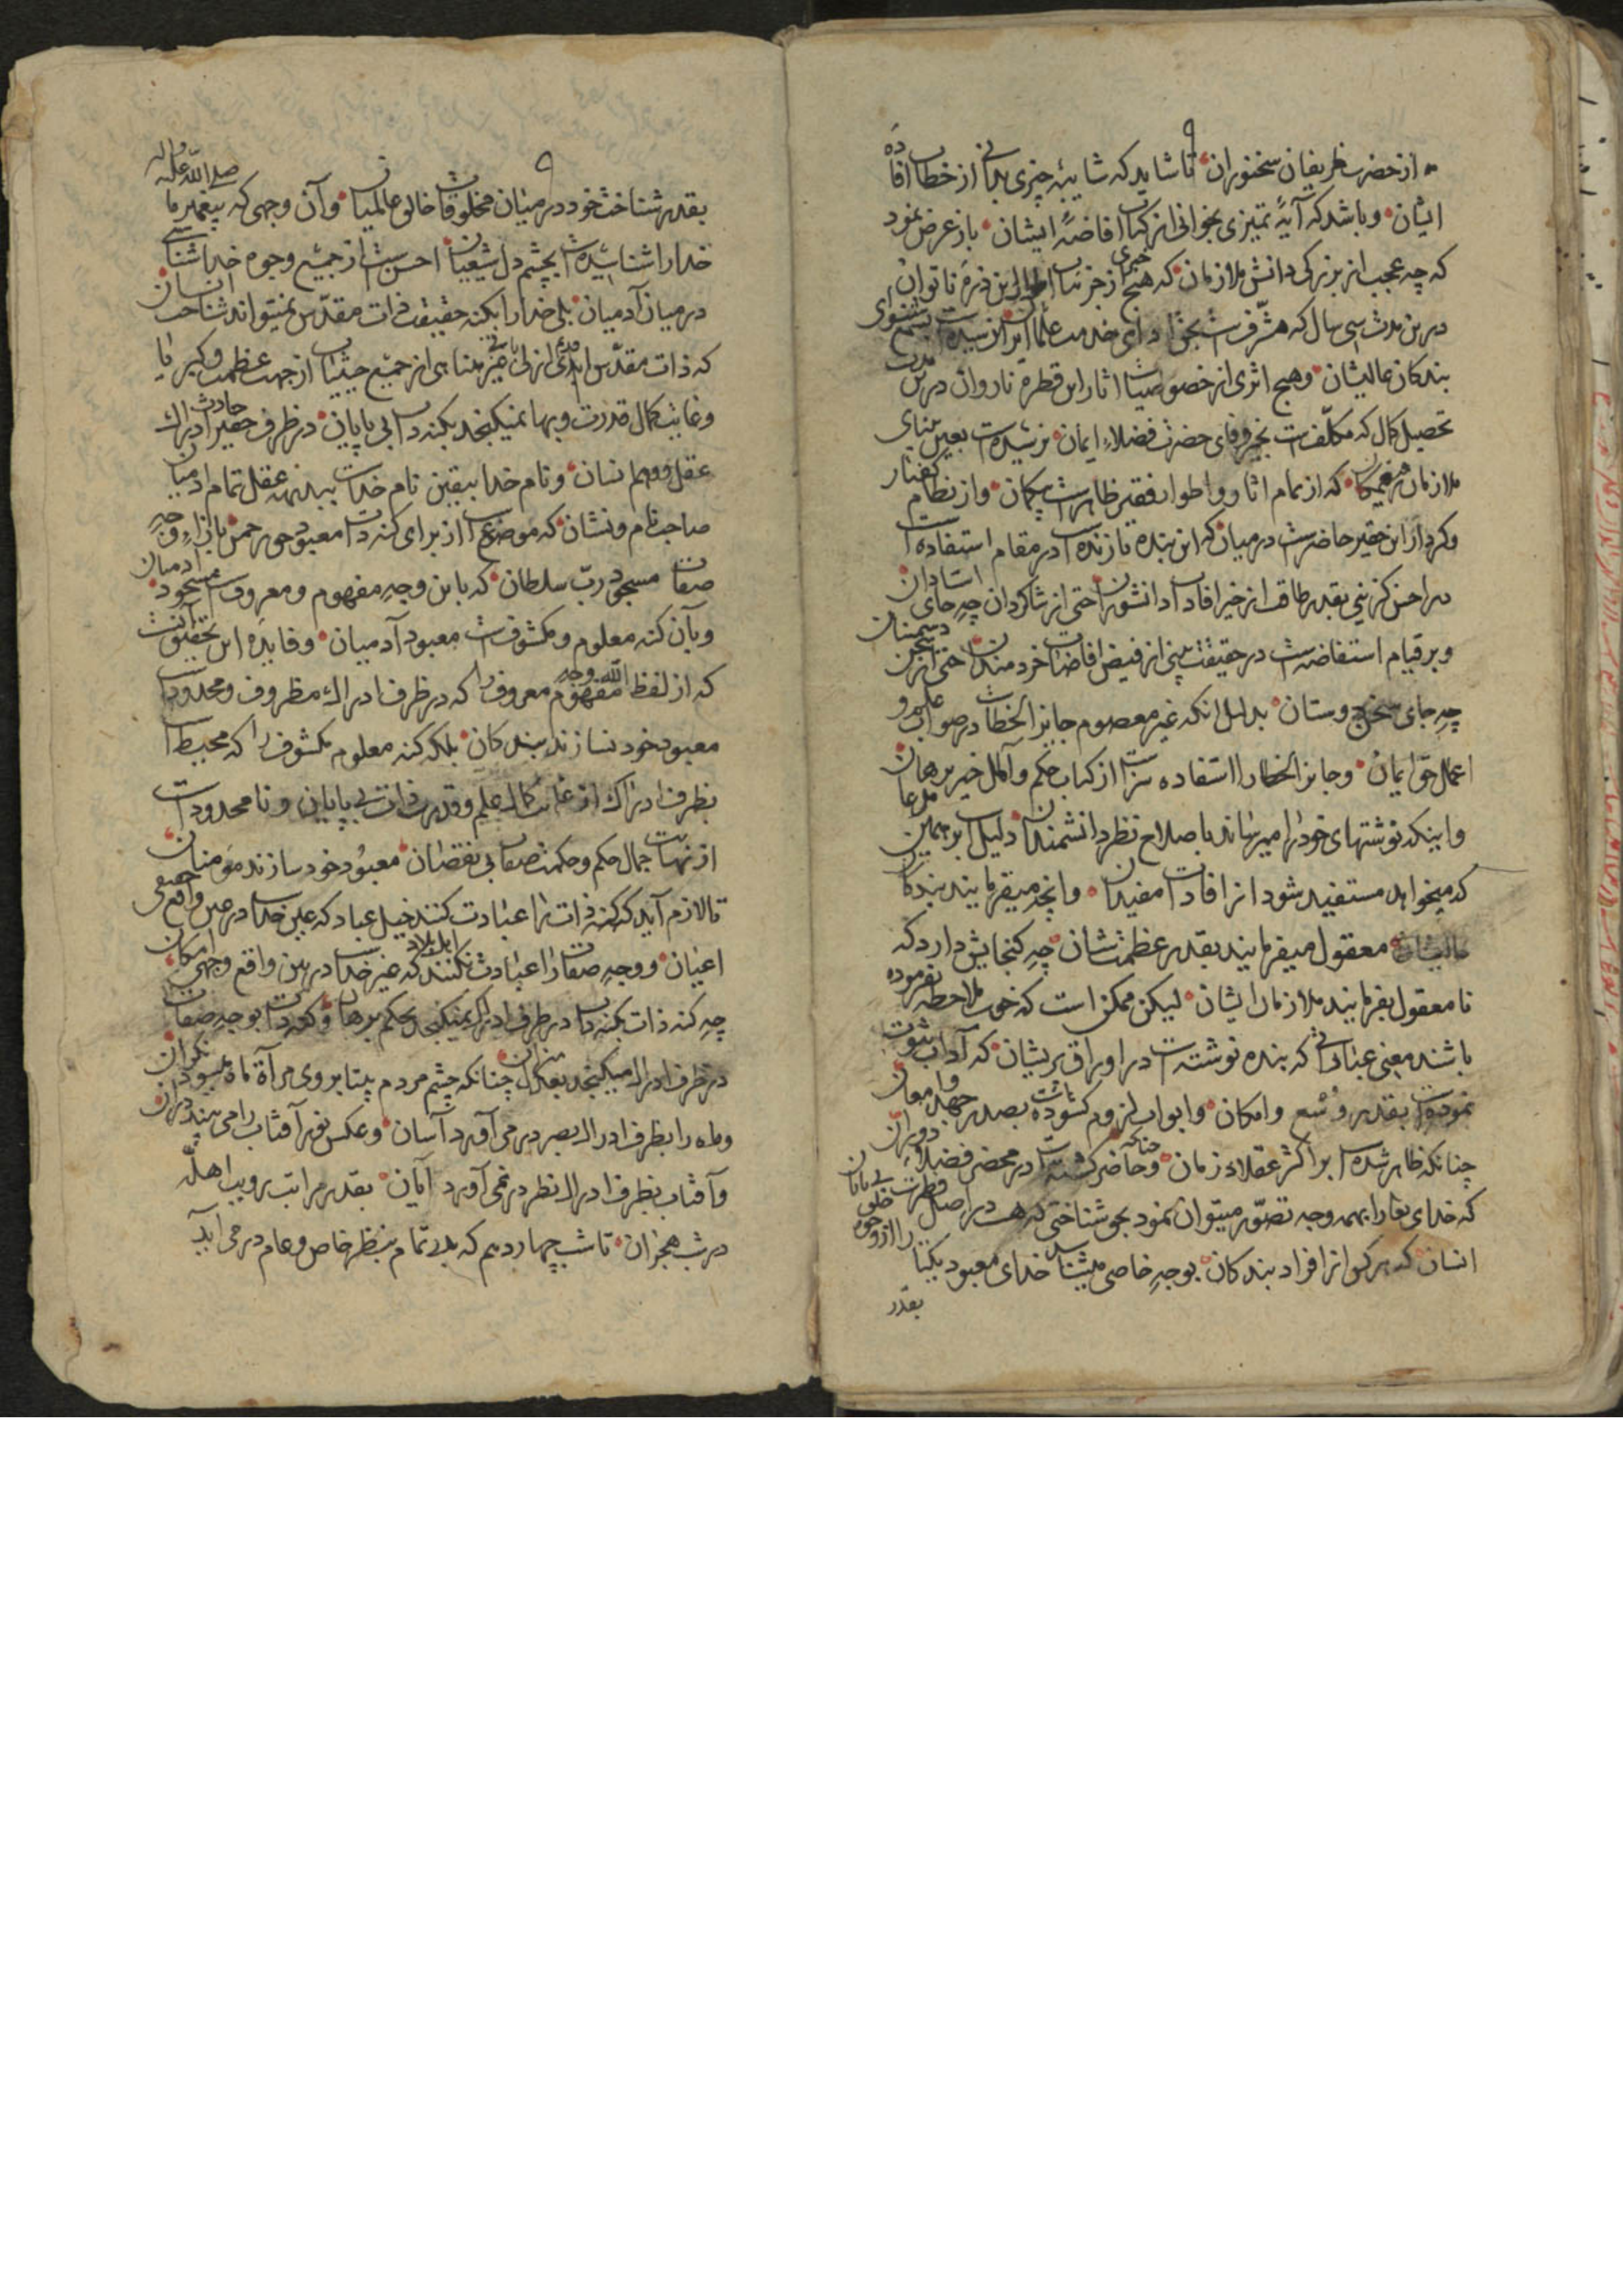 از حضرت ظریفان سخنوران تا شاید که شایبهٔ چیزی بدانی از خطاب افادهٔ
ایشان و باشد که آیهٔ تمیزی بخوانی از کتاب افاضهٔ ایشان باز عرض نمود
که چه عجب از بزرکی دانش ملازمان که هیچ خبری از جزئیات اطوار این ذرهٔ ناتوان
درین مدت سی سال که مشرفست بخدای خدمت علما ایران نرسیده است بسمع شنوای
بندکان عالیشان و هیچ اثری از خصوصیات اثار این قطرهٔ ناروان درین مدت
تحصیل کمال که مکلفست بخیر وفای حضرت فضلاء ایمان نرسیده است بعین بینای
ملازمان که از تمام اثار و اطوار فقیر ظاهرست و از نظام کفتار
و کردار این حقیر حاضرست در میان که این بنده تا زنده است در مقام استفاده است
بقدر طاقت از خیر افادات دانشوران حتی از شاکردان چه جای استادان
و بر قیام استفاضه است در حقیقت بینی از فیض افاضات خردمندان حتی از دشمنان
چه جای دوستان بدلیل انکه غیر معصوم جایز الخطاست در صواب علم و
اعمال حق ایمان و جایز الخطا را استفاده سزاست از کتاب حکم و آمال خیر برهان
و اینکه نوشتهای خود را میرساند باصلاح نظر دانشمندان دلیل است بر همین مدعا
که میخواهد مستفید شود از افادات مفیدان و انچه میفرمایند بندکان
عالیشان معقول میفرمایند بقدر عظمت شان چه کنجایش دارد که
نا معقول بفرمایند ملازمان ایشان لیکن ممکن است که خوب ملاحظه نفرموده
باشند معنی عباراتی که بنده نوشته است در اوراق پریشان که آداب ثبوت
نموده است بقدر وسع و امکان و ابواب لزوم کشوده است بصدر جهد و امعان
چنانکه ظاهر شده است بر اکثر عقلاء زمان و حاضر کشته است در محضر فضلاء دوران
که خدای تعالی را بهمه وجه تصور میتوان نمود بجز شناختی که هست در اصل فطرت خلق
انسان که هر کس از افراد بندکان بوجه خاصی میشناسد خدای معبود یکتا را از وجوه بی پایان
بقدر
بقدر شناخت خود در میان مخلوقات خالق عالمیان و آن وجهی که پیغمبر ما صلی الله علیه و اله
خدا را شناسیده است بچشم دل شیعیان احسن است از جمیع وجوه خدا شناسی
در میان آدمیان بلی خدا را بکنه حقیقت ذات مقدس نمیتواند شناخت انسان
که ذات مقدس ابدی ازلی غیر متناهی از جمیع جهات از جهت عظمت و کبریا
و غایت کمال قدرت و بها نمیکنجد بکنه ذات بی پایان در ظرف حقیر ادراک حادث
عقل و وهم انسان و نام خدا بیقین نام خداست ببدیهه عقل تمام ادمیان
صاحب نام و نشان که موضوعست از برای کنه ذات معبود حق رحمن بازاء وجه
صفات مسجود رب سلطان که باین وجه مفهوم و معروفست مسجود ادمیان
و بآن کنه معلوم و مکشوفست معبود آدمیان و فایدهٔ این تحقیق آنست
که از لفظ الله وجه مفهوم معروف را که در ظرف ادراک مظروف و محدودست
معبود خود نسازند بندکان بلکه کنه معلوم مکشوف را که محیط است
بظرف ادراک از غایت کمال علم و قدرت ذات بی پایان و نامحدود است
از نهایت جمال حکم و حکمت صفات بی نقصان معبود خود سازند مومنان
تا لازم آید که کنه ذات را عبادت کنند خیل عباد که عین خداست در عین واقع حقیقی
اعیان و وجه صفات را عبادت نکنند اهل بلاد که غیر خداست در بین واقع وجهی امکان
چه کنه ذات بکنه ذات در ظرف ادراک نمیکنجد بحکم برهان و کنه ذات بوجه صفات
در ظرف ادراک میکنجد بعدل میزان چنانکه چشم مردم بینا بروی مرآة ماه میشود نکران
و ماه را بظرف ادراک بصر در می آورد آسان و عکس نور آفتاب را می بیند در آن
و آفتاب بظرف ادراک نظر در نمی آورد آیان بقدر مراتب رویت اهله
در شب هجران تا شب چهاردهم که بدر تمام بنظر خاص و عام در می آید